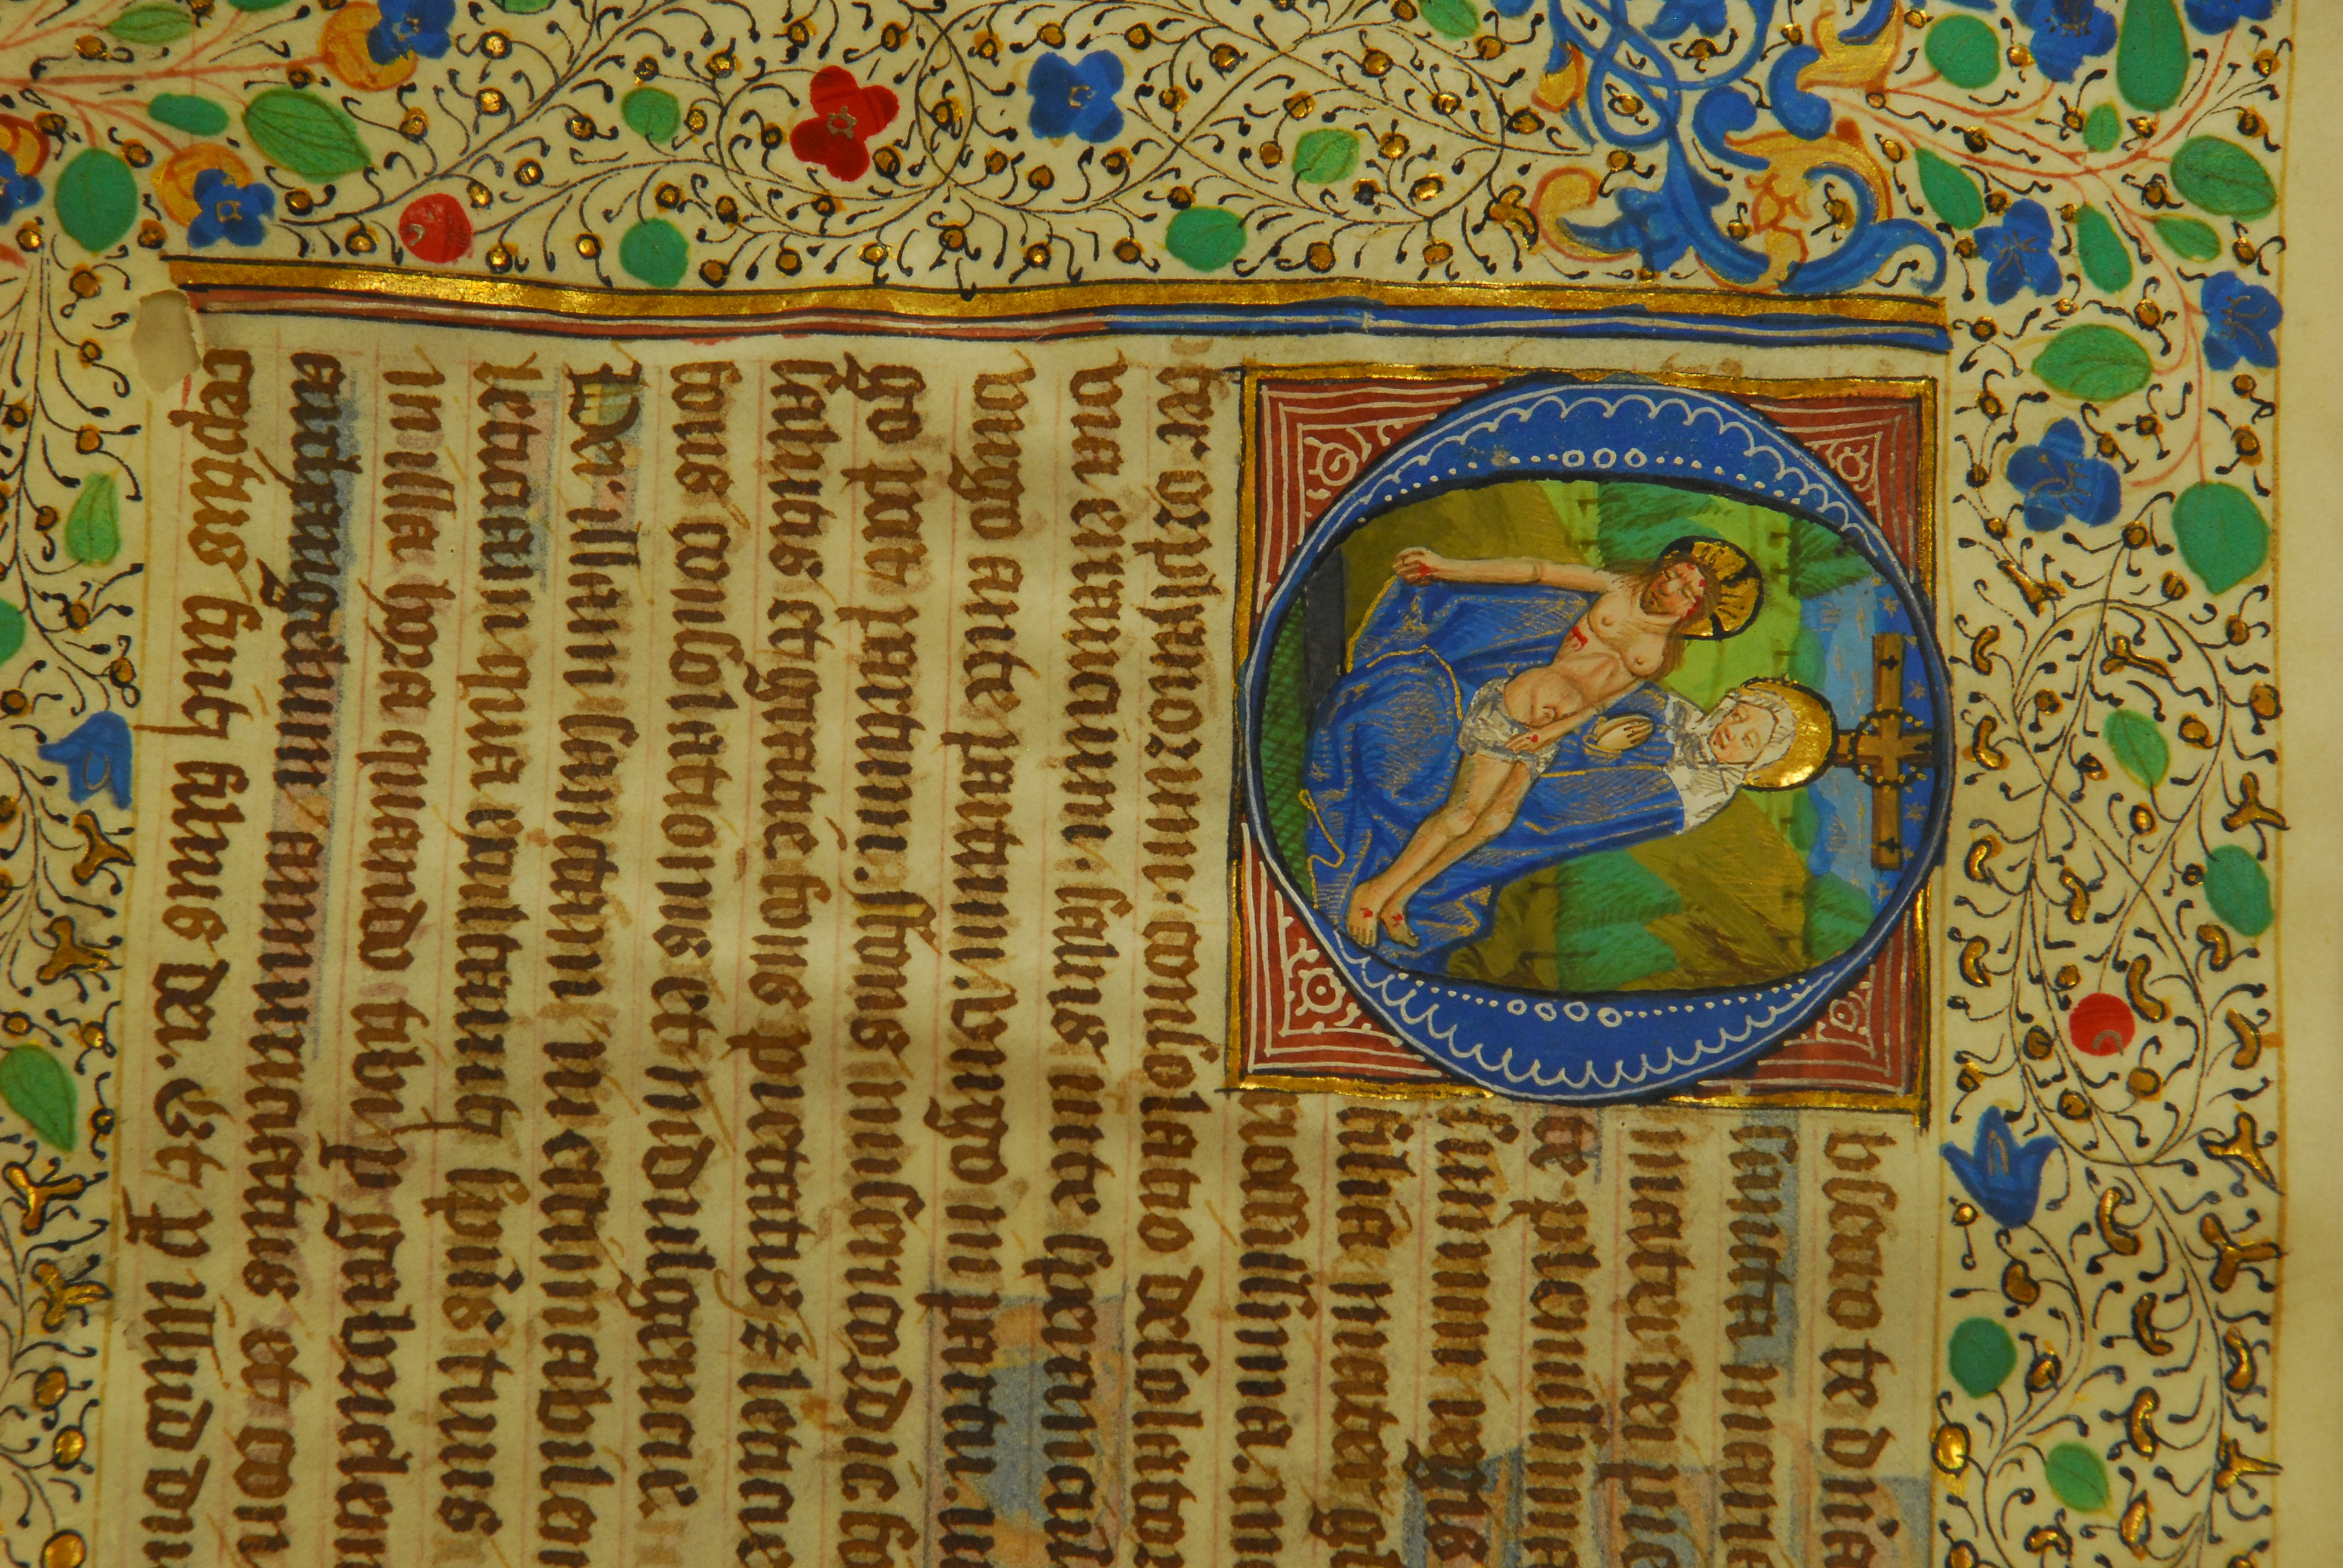 bsecro te dn̄a
sancta marie
mater dei pie
te plenissima
summi regis
filia mater gl
riosissima. m
ter orphanorum. consolatio desolator
via errantium. salus in te speranti
virgo ante partum. virgo in partu. vi
go post partum. ffons misericordie fo
salutis et gratie fons pietatis z leticie
fons consolationis et indulgencie
Per illam sanctam inestimabilem
leticiam qua exultauit sp̄us tuus
in illa hora quando tibi ꝑ gabrielem
archangelum annunciatus et con
ceptus fuit filius dei. Et ꝑ illud diui